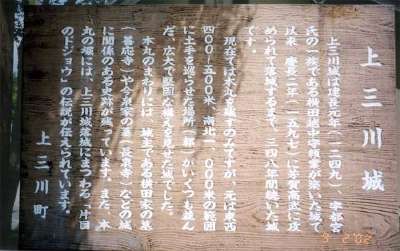 上三川城
上三川城は建長元年(一二四九)、宇都宮
氏の一族である横田越中守頼業が築いた城で
以来、慶長二年(一五九七)に芳賀高武に攻
められて落城するまで、三四八年間続いた城
です。
現在では本丸を残すのみですが、元は東西
四〇〇〜五〇〇米、南北一、〇〇〇米の範囲
に土手を巡らせた場所(郭)がいくつも並ん
だ、広大で堅固な構えを見せた城でした。
本丸のまわりには、城主である横田家の墓
(善応寺)や今泉家の墓(長泉寺)などの城
に関係のある史跡が残っています。また、本
丸の堀には、上三川城落城にまつわる、片目
の「ドジョウ」の伝説が伝えられています。
上三川町